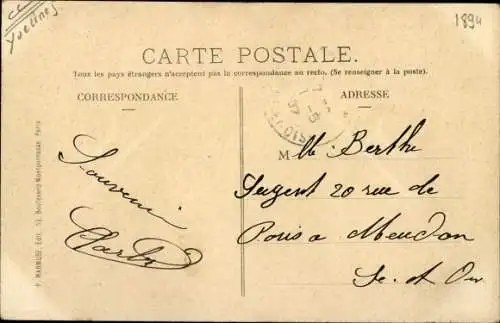 Yvelines
1894
CARTE POSTALE.
Tous les pays étrangers n'acceptent pas la correspondance au recto. (Se renseigner à la poste).
CORRESPONDANCE
ADRESSE
Souvenir
Mlle Berthe
20 rue de
Paris a Meudon
S. et O